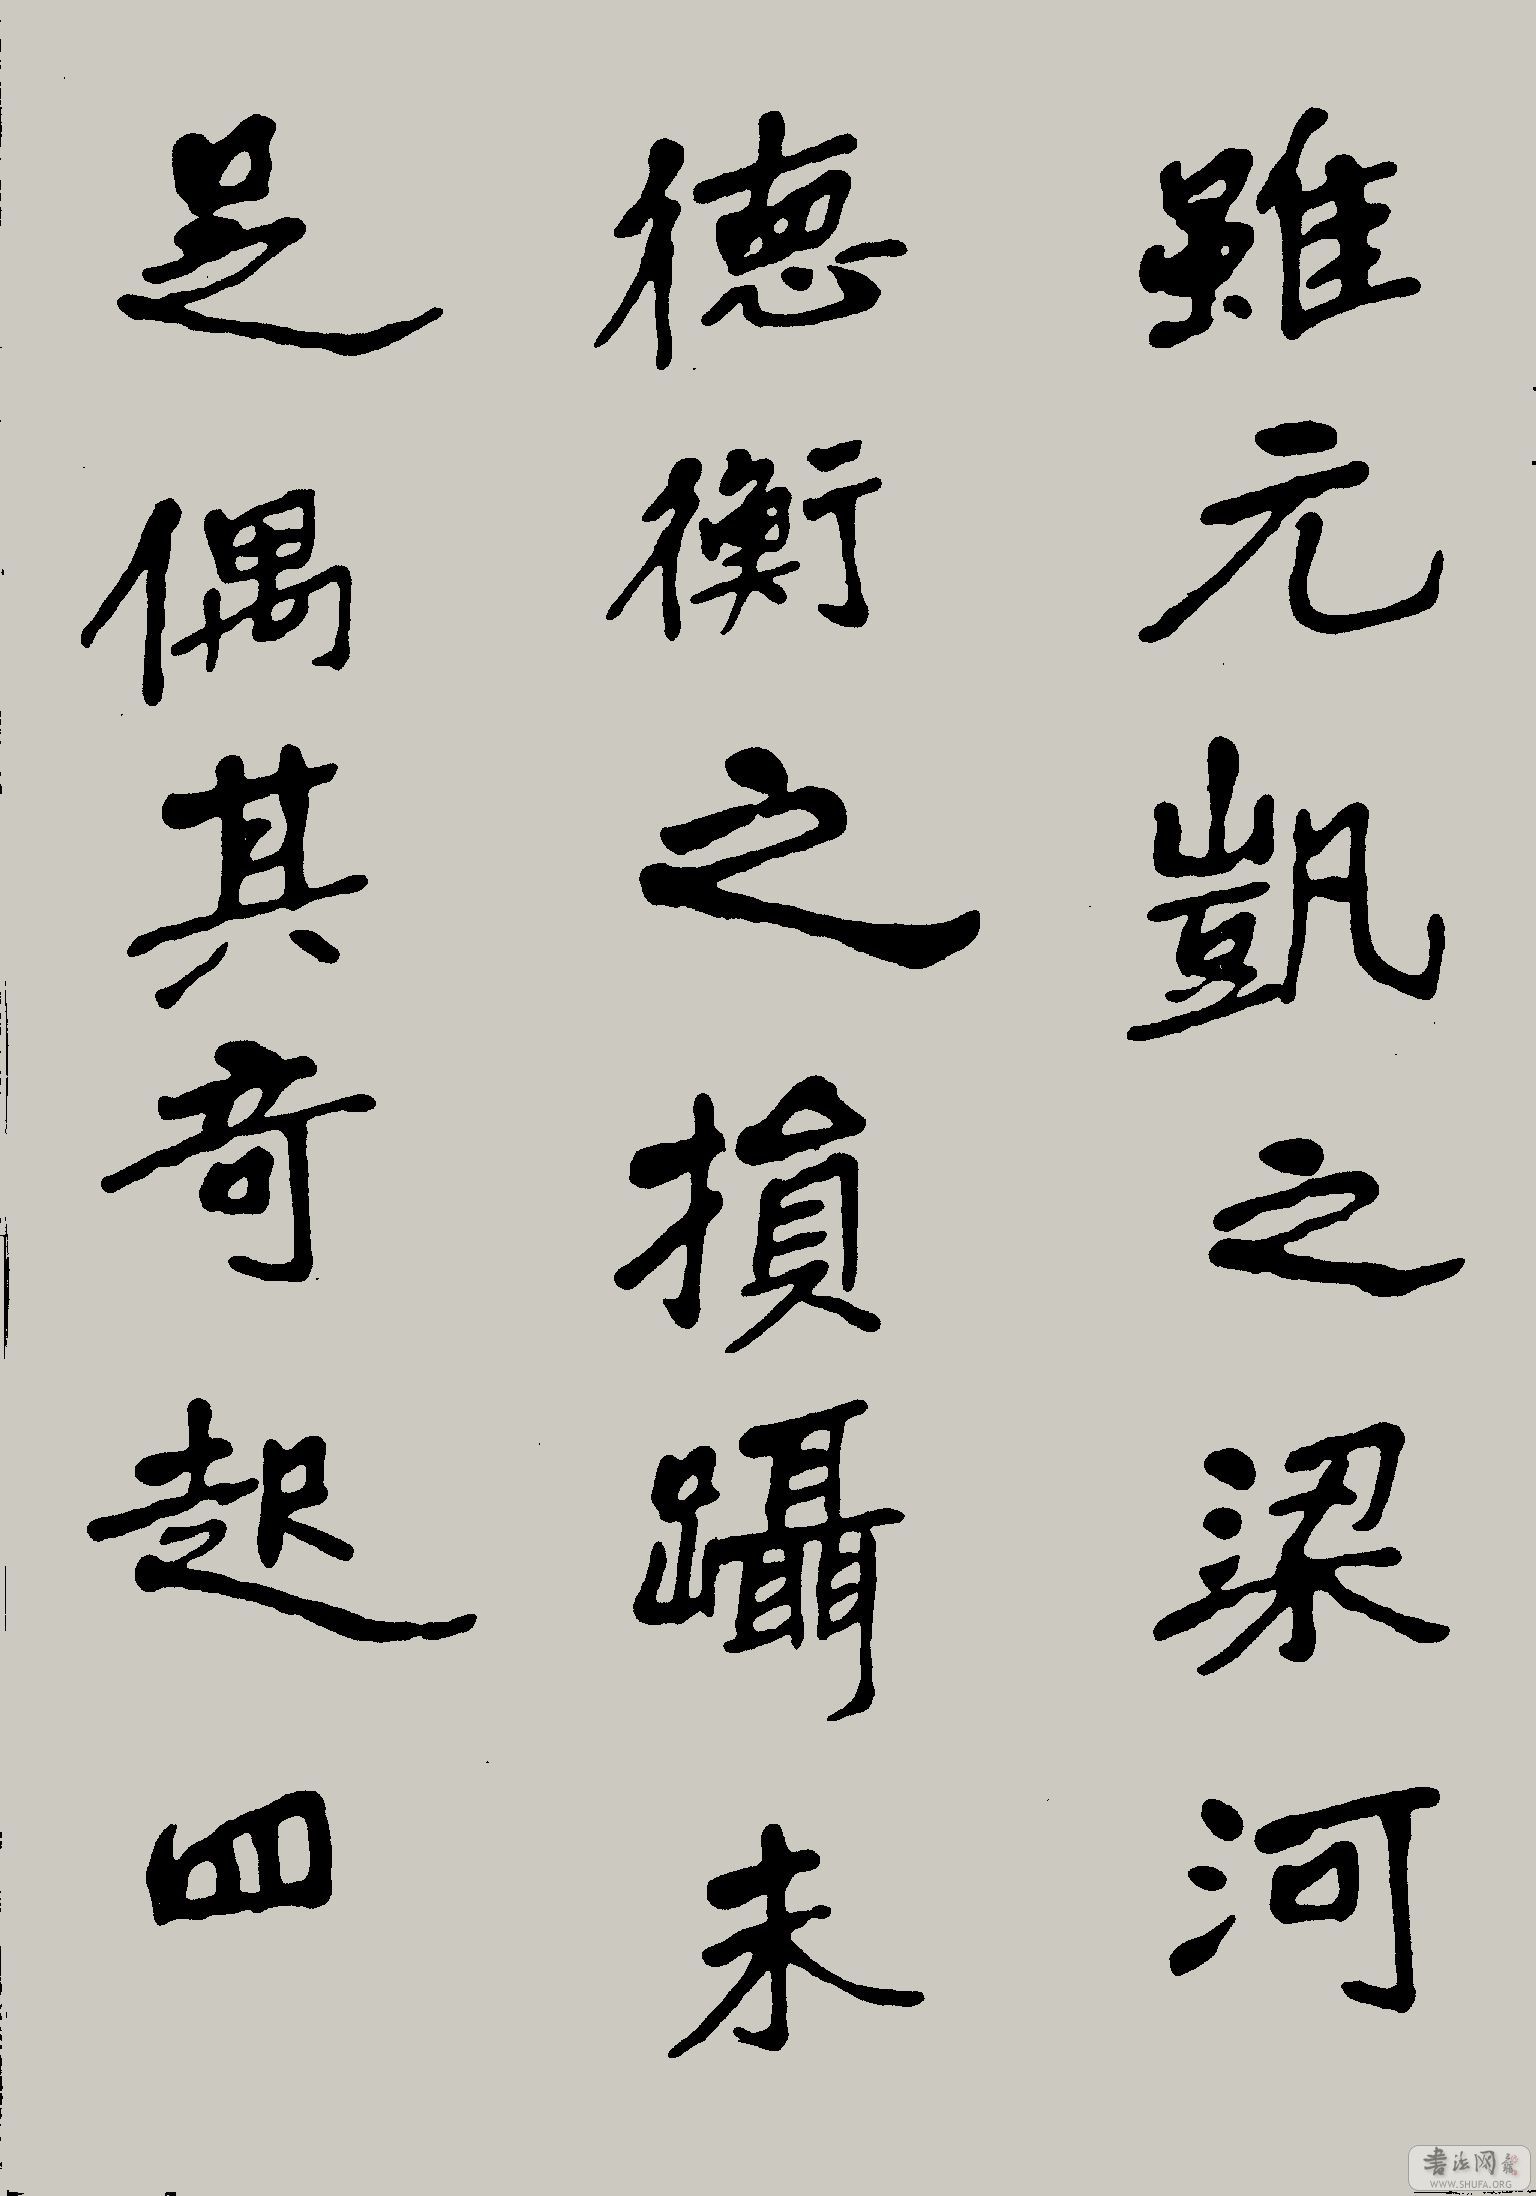 雖元凱之梁河
德衡之損躡未
足偶其奇起四
書法网
WWW.SHUFA.ORG